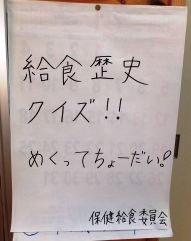 給食歴史
クイズ!!
めくってちょーだい。
保健給食委員会